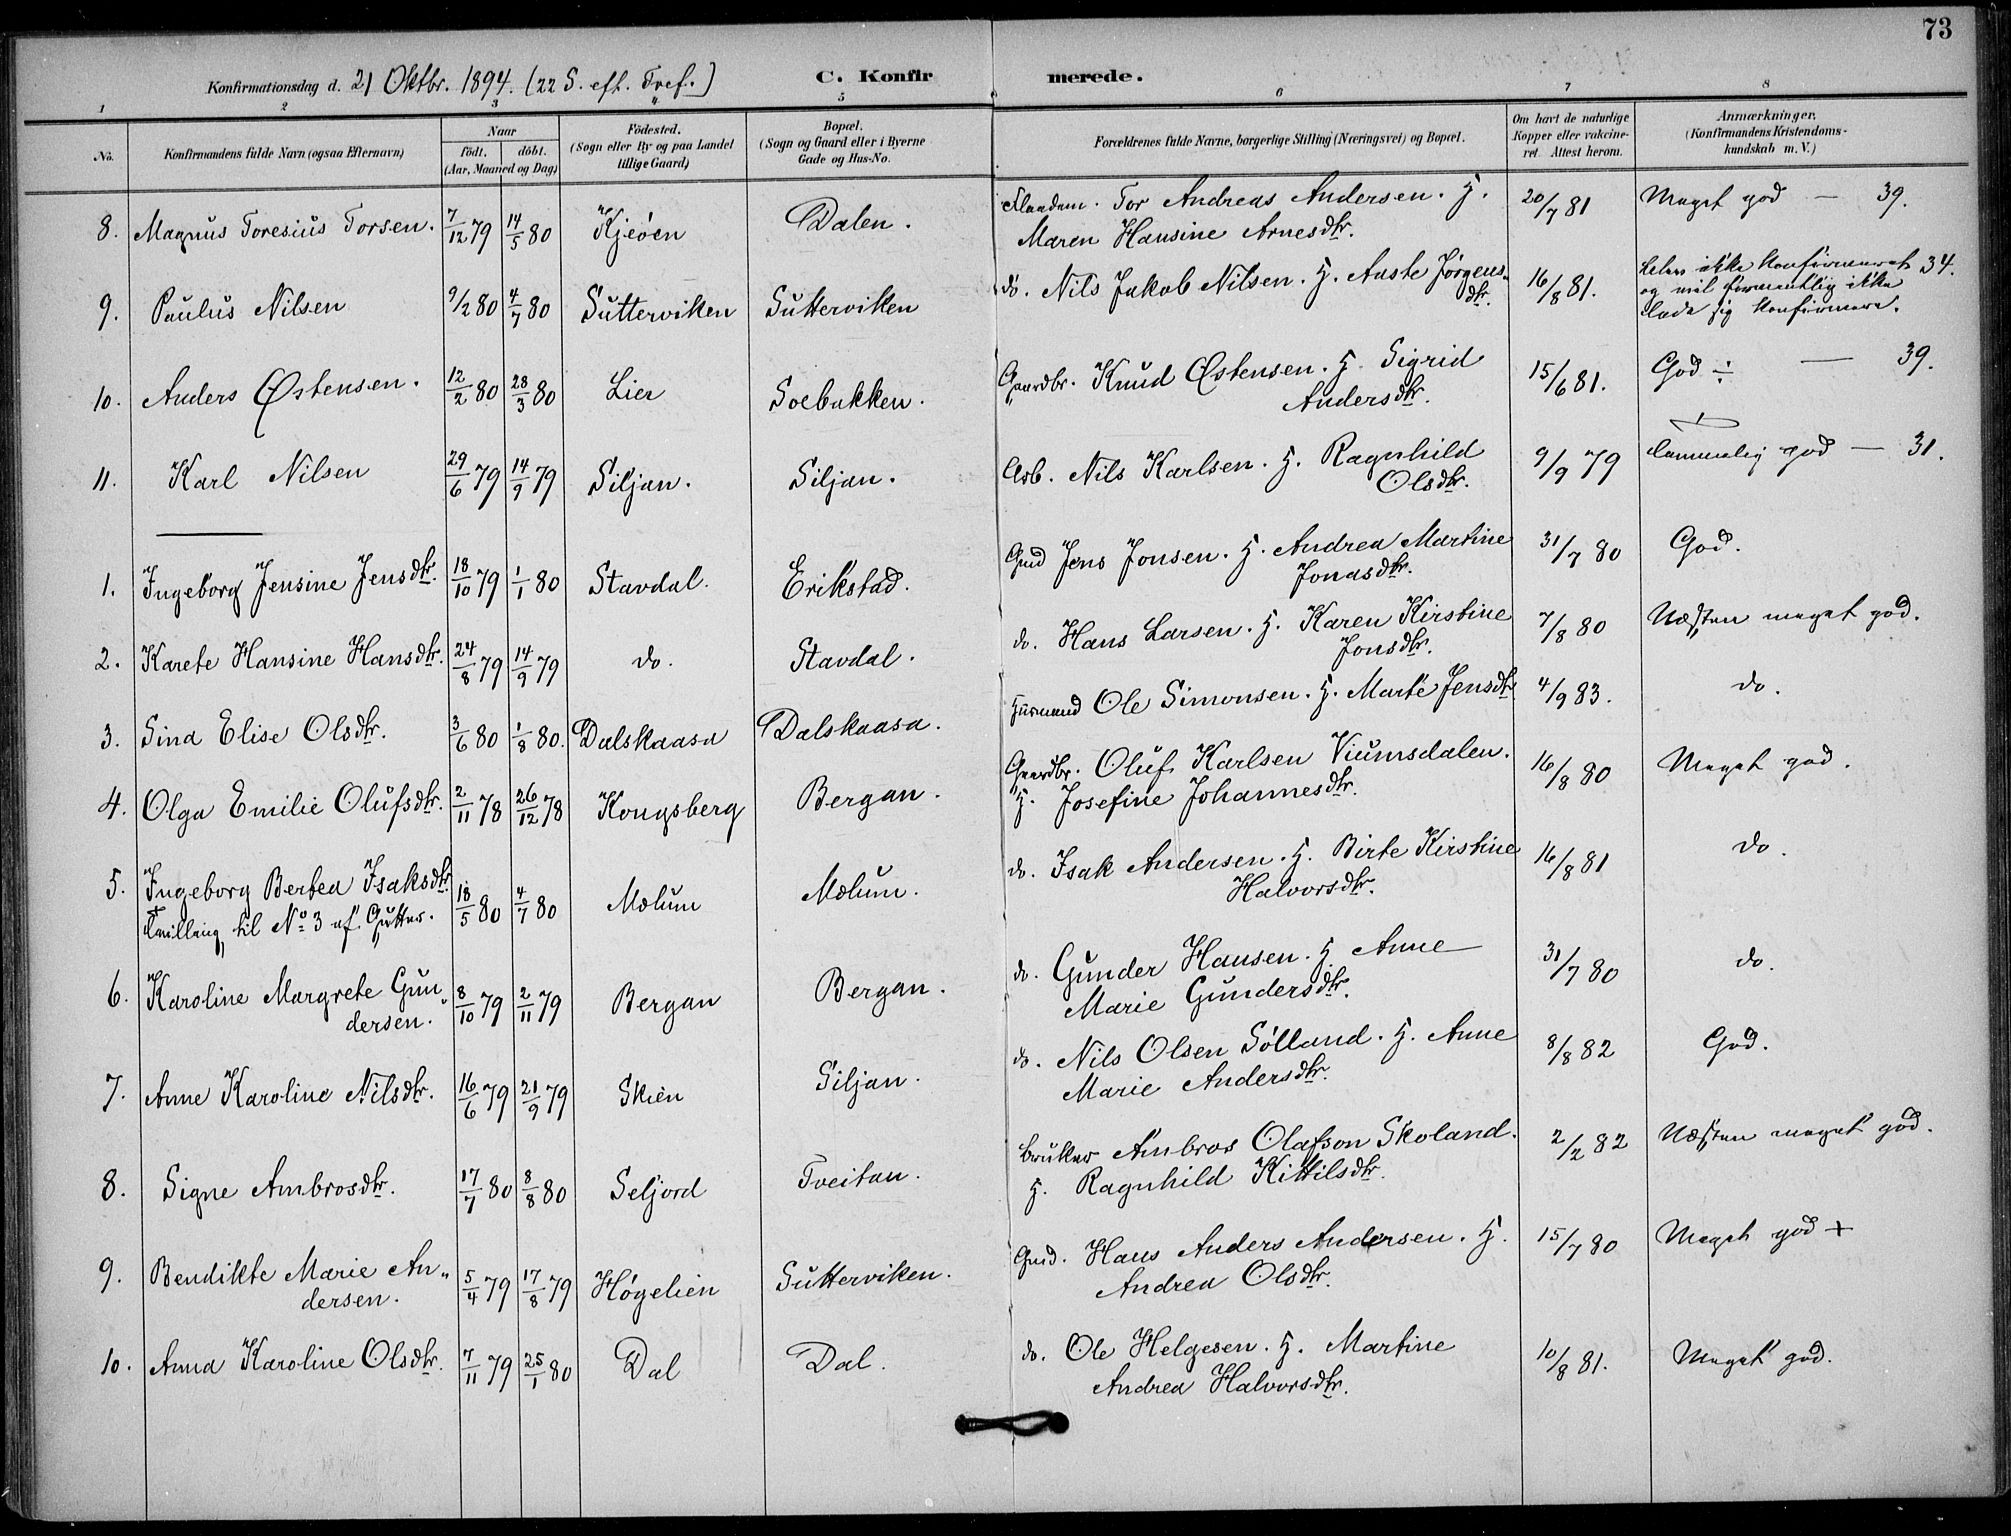 73
Konfirmationsdag d. 21 Oktbr. 1894. (22 S. eft. Tref.)
C. Konfirmerede.
1 2 3 4 5 6 7 8
No. Konfirmandens fulde Navn (ogsaa Efternavn) Naar født. døbt. (Aar, Maaned og Dag) Fødested. (Sogn eller By og paa Landet tillige Gaard) Bopæl. (Sogn og Gaard eller i Byerne Gade og Hus-No. Forældrenes fulde Navne, borgerlige Stilling (Næringsvei) og Bopæl. Om havt de naturlige Kopper eller vakcineret. Attest herom. Anmærkninger. (Konfirmandens Kristendomskundskab m. V.)
8. Magnus Toresius Torsen. 7/12 79 14/5 80 Kjeøen Dalen. Tor Andreas Andersen. H. 20/7 81 Meget god — 39.
Maren Hansine Arnesdtr.
9. Paulus Nilsen 9/2 80 4/7 80 Sutterviken Sutterviken do. Nils Jakob Nilsen. H. Aaste Jørgens- 16/8 81. ikke konfirmeret 34.
dtr. og vil formentlig ikke
lade sig konfirmere.
10. Anders Østensen. 12/2 80 28/3 80 Lier Soebakken. Gaardbr. Knud Østensen. H. Sigrid 15/6 81. God ÷ — 39.
Andersdtr.
11. Karl Nilsen 29/6 79 14/9 79 Siljan. Siljan. Arb. Nils Karlsen. H. Ragnhild 9/9 79 Temmelig god — 31.
Olsdtr.
1. Ingeborg Jensine Jensdtr. 18/10 79 1/1 80 Stavdal. Erikstad. Gmd Jens Jonsen. H. Andrea Martine 31/7 80 God.
Jonasdtr.
2. Karete Hansine Hansdtr. 24/8 79 14/9 79 do. Stavdal. do. Hans Larsen. H. Karen Kirstine 7/8 80 Næsten meget god.
Jonsdtr.
3. Sina Elise Olsdtr. 3/6 80 1/8 80. Dalskaasa Dalskaasa. Husmand Ole Simonsen. H. Marte Jensdtr 4/9 83. do.
4. Olga Emilie Olufsdtr. 2/11 78 26/12 78 Kongsberg Bergan. Gaardbr. Oluf Karlsen Viumsdalen. 16/8 80 Meget god.
H. Josefine Johannesdtr.
5. Ingeborg Bertea Isaksdtr 18/5 80 4/7 80 Mælum Mælum. do. Isak Andersen. H. Birte Kirstine 16/8 81 do.
Tvilling til No 3 af Gutter. Halvorsdtr.
6. Karoline Margrete Gun- 8/10 79 2/11 79 Bergan Bergan. do. Gunder Hansen. H. Anne 31/7 80 do.
dersen. Marie Gundersdtr.
7. Anne Karoline Nilsdtr. 16/6 79 21/9 79 Skien Siljan. do. Nils Olsen Sølland. H. Anne 8/8 82 God.
Marie Andersdtr.
8. Signe Ambrosdtr. 17/7 80 8/8 80 Seljord Tveitan. Bruker Ambros Olafson Skoland. 2/2 82 Næsten meget god.
H. Ragnhild Kittilsdtr.
9. Bendikte Marie An- 5/4 79 17/8 79 Høgelien Sutterviken. Gmd. Hans Anders Andersen. H. 15/7 80 Meget god +
dersen. Andrea Olsdtr.
10. Anna Karoline Olsdtr. 7/11 79 25/1 80 Dal Dal. do. Ole Helgesen. H. Martine 10/8 81. Meget god.
Andrea Halvorsdtr.